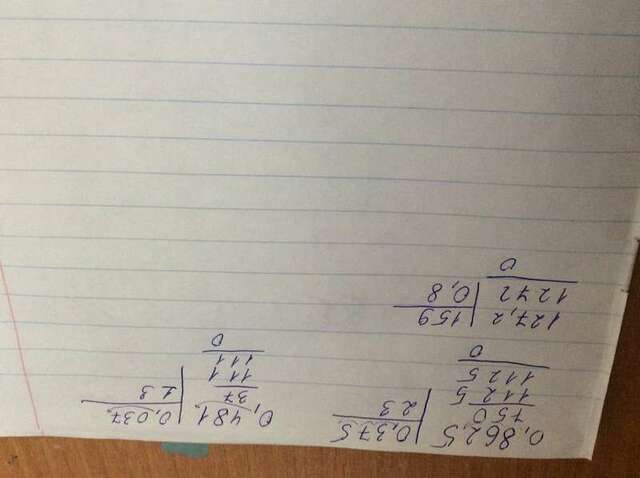 0,8625 | 0,375
750 23
1125
1125
0
0,481 | 0,037
37 13
111
111
0
127,2 | 159
1272 0,8
0